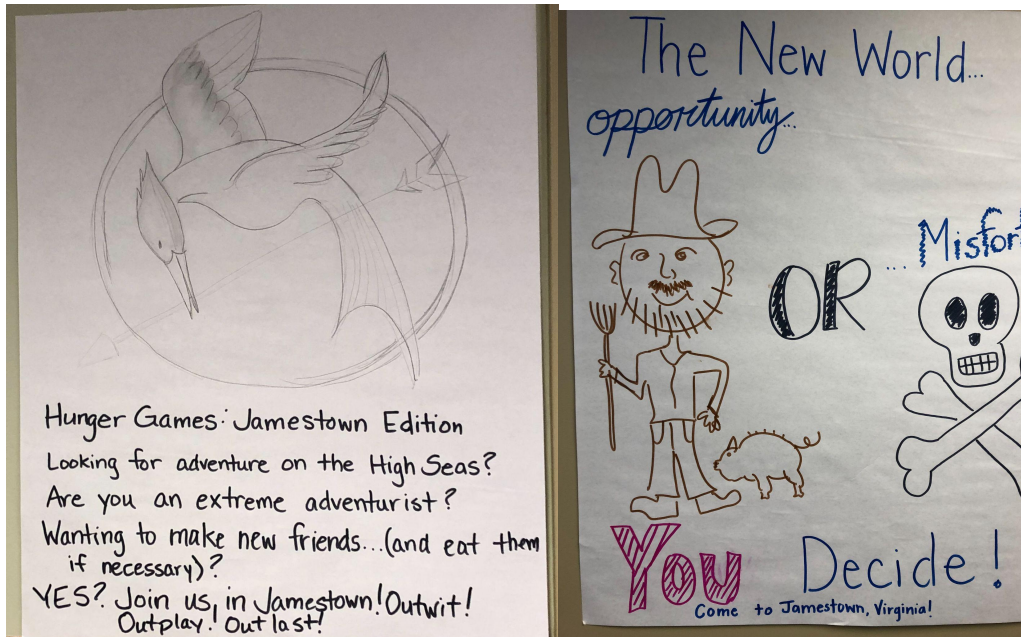 Hunger Games: Jamestown Edition
Looking for adventure on the High Seas?
Are you an extreme adventurist?
Wanting to make new friends...(and eat them
if necessary)?
YES? Join us, in Jamestown! Outwit!
Outplay! Outlast!
The New World...
opportunity...
OR
...Misfort
You Decide!
Come to Jamestown, Virginia!